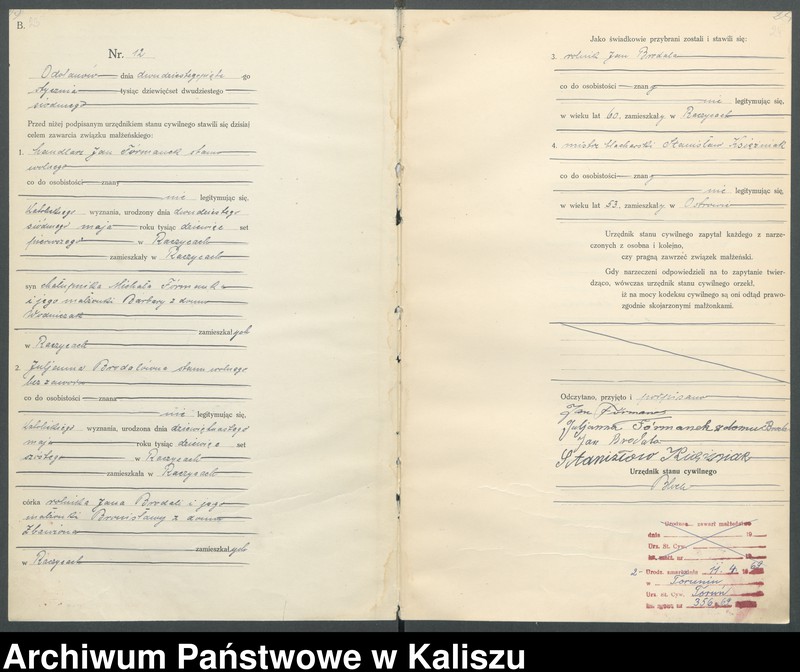 B.
Nr. 12
Odolanów dnia dwudziestego piątego
stycznia tysiąc dziewięćset dwudziestego
siódmego
Przed niżej podpisanym urzędnikiem stanu cywilnego stawili się dzisiaj
celem zawarcia związku małżeńskiego:
1. handlarz Jan Förmanek stanu
wolnego
co do osobistości znany
nie legitymując się,
katolickiego wyznania, urodzony dnia dwudziestego
siódmego maja roku tysiąc dziewięć set
pierwszego w Raczycach
zamieszkały w Raczycach
syn chałupnika Michała Förmanka
i jego małżonki Barbary z domu
zamieszkałych
w Raczycach
2. Juljanna Brodalówna stanu wolnego
bez zawodu
co do osobistości znana
nie legitymując się,
katolickiego wyznania, urodzona dnia dziewiętnastego
maja roku tysiąc dziewięć set
szóstego w Raczycach
zamieszkała w Raczycach
córka rolnika Jana Brodali i jego
małżonki Bronisławy z domu
zamieszkałych
w Raczycach
Jako świadkowie przybrani zostali i stawili się:
3. rolnik Jan Brodala
co do osobistości znany
nie legitymując się,
w wieku lat 60, zamieszkały w Raczycach
4. mistrz Stanisław Księżniak
co do osobistości znany
nie legitymując się,
w wieku lat 53, zamieszkały w Ostrowie
Urzędnik stanu cywilnego zapytał każdego z narze-
czonych z osobna i kolejno,
czy pragną zawrzeć związek małżeński.
Gdy narzeczeni odpowiedzieli na to zapytanie twier-
dząco, wówczas urzędnik stanu cywilnego orzekł,
iż na mocy kodeksu cywilnego są oni odtąd prawo-
zgodnie skojarzonymi małżonkami.
Odczytano, przyjęto i podpisano
Jan Förmanek
Juljanna Förmanek z domu Brodala
Jan Brodala
Stanisław Księżniak
Urzędnik stanu cywilnego
zawarł małżeństwo
dnia 19
Urz. St. Cyw.
2- Urodz. zmarł dnia 11. 4. 1969
w Toruniu
Urz. St. Cyw. Toruń
nr 356/69
Archiwum Państwowe w Kaliszu